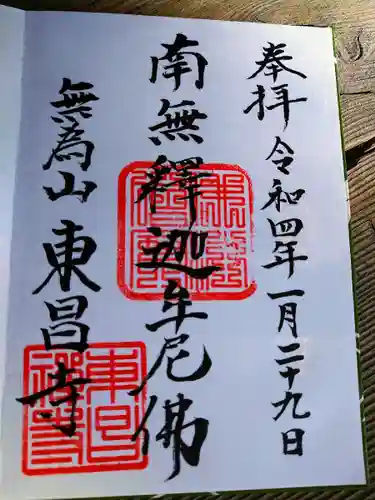 奉拝
令和四年一月二十九日
南無釋迦牟尼佛
無為山
東昌寺